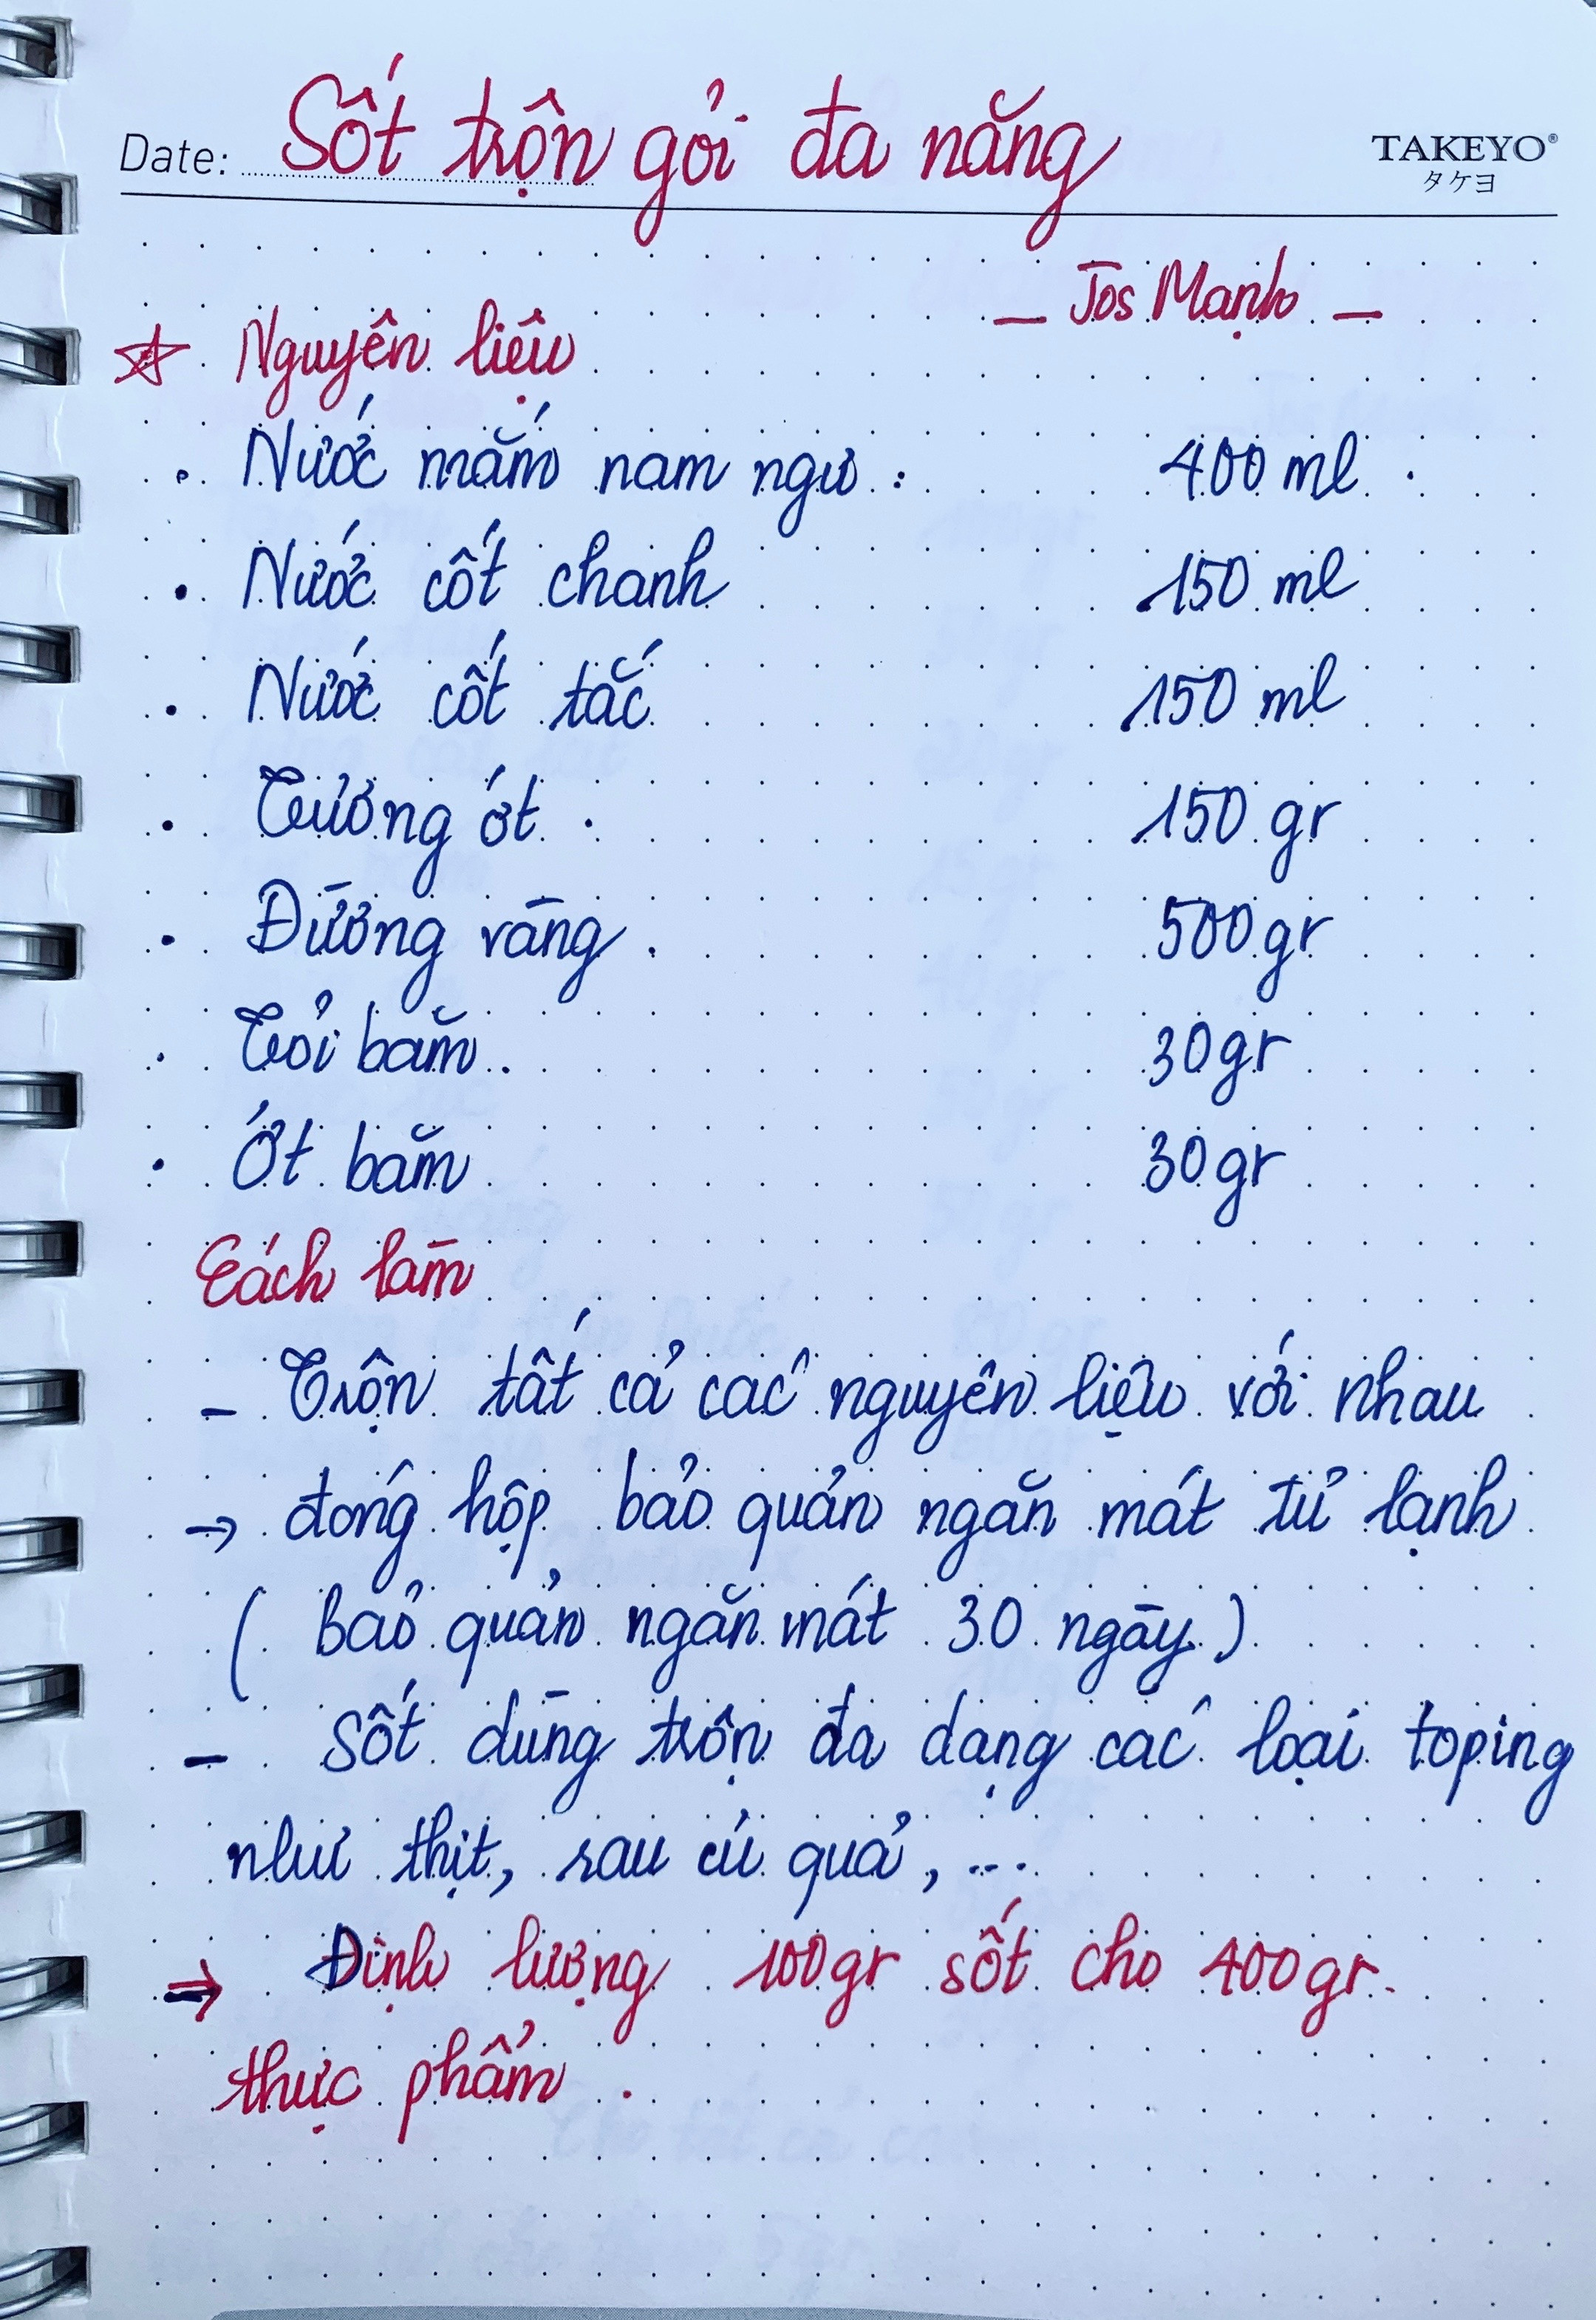 Date: Sốt trộn gỏi đa năng
TAKEYO®
タケヨ
_ Jos Mạnh _
☆ Nguyên liệu
. Nước mắm nam ngư : 400 ml .
. Nước cốt chanh 150 ml
. Nước cốt tắc 150 ml
. Tương ớt . 150 gr
. Đường vàng . 500 gr
. Tỏi băm . 30 gr
. Ớt băm 30 gr
Cách làm
- Trộn tất cả các nguyên liệu với nhau
→ đóng hộp bảo quản ngăn mát tủ lạnh
( Bảo quản ngăn mát 30 ngày )
- Sốt dùng trộn đa dạng các loại toping
như thịt, rau củ quả, ...
⇒ Định lượng 100gr sốt cho 400gr.
thực phẩm .